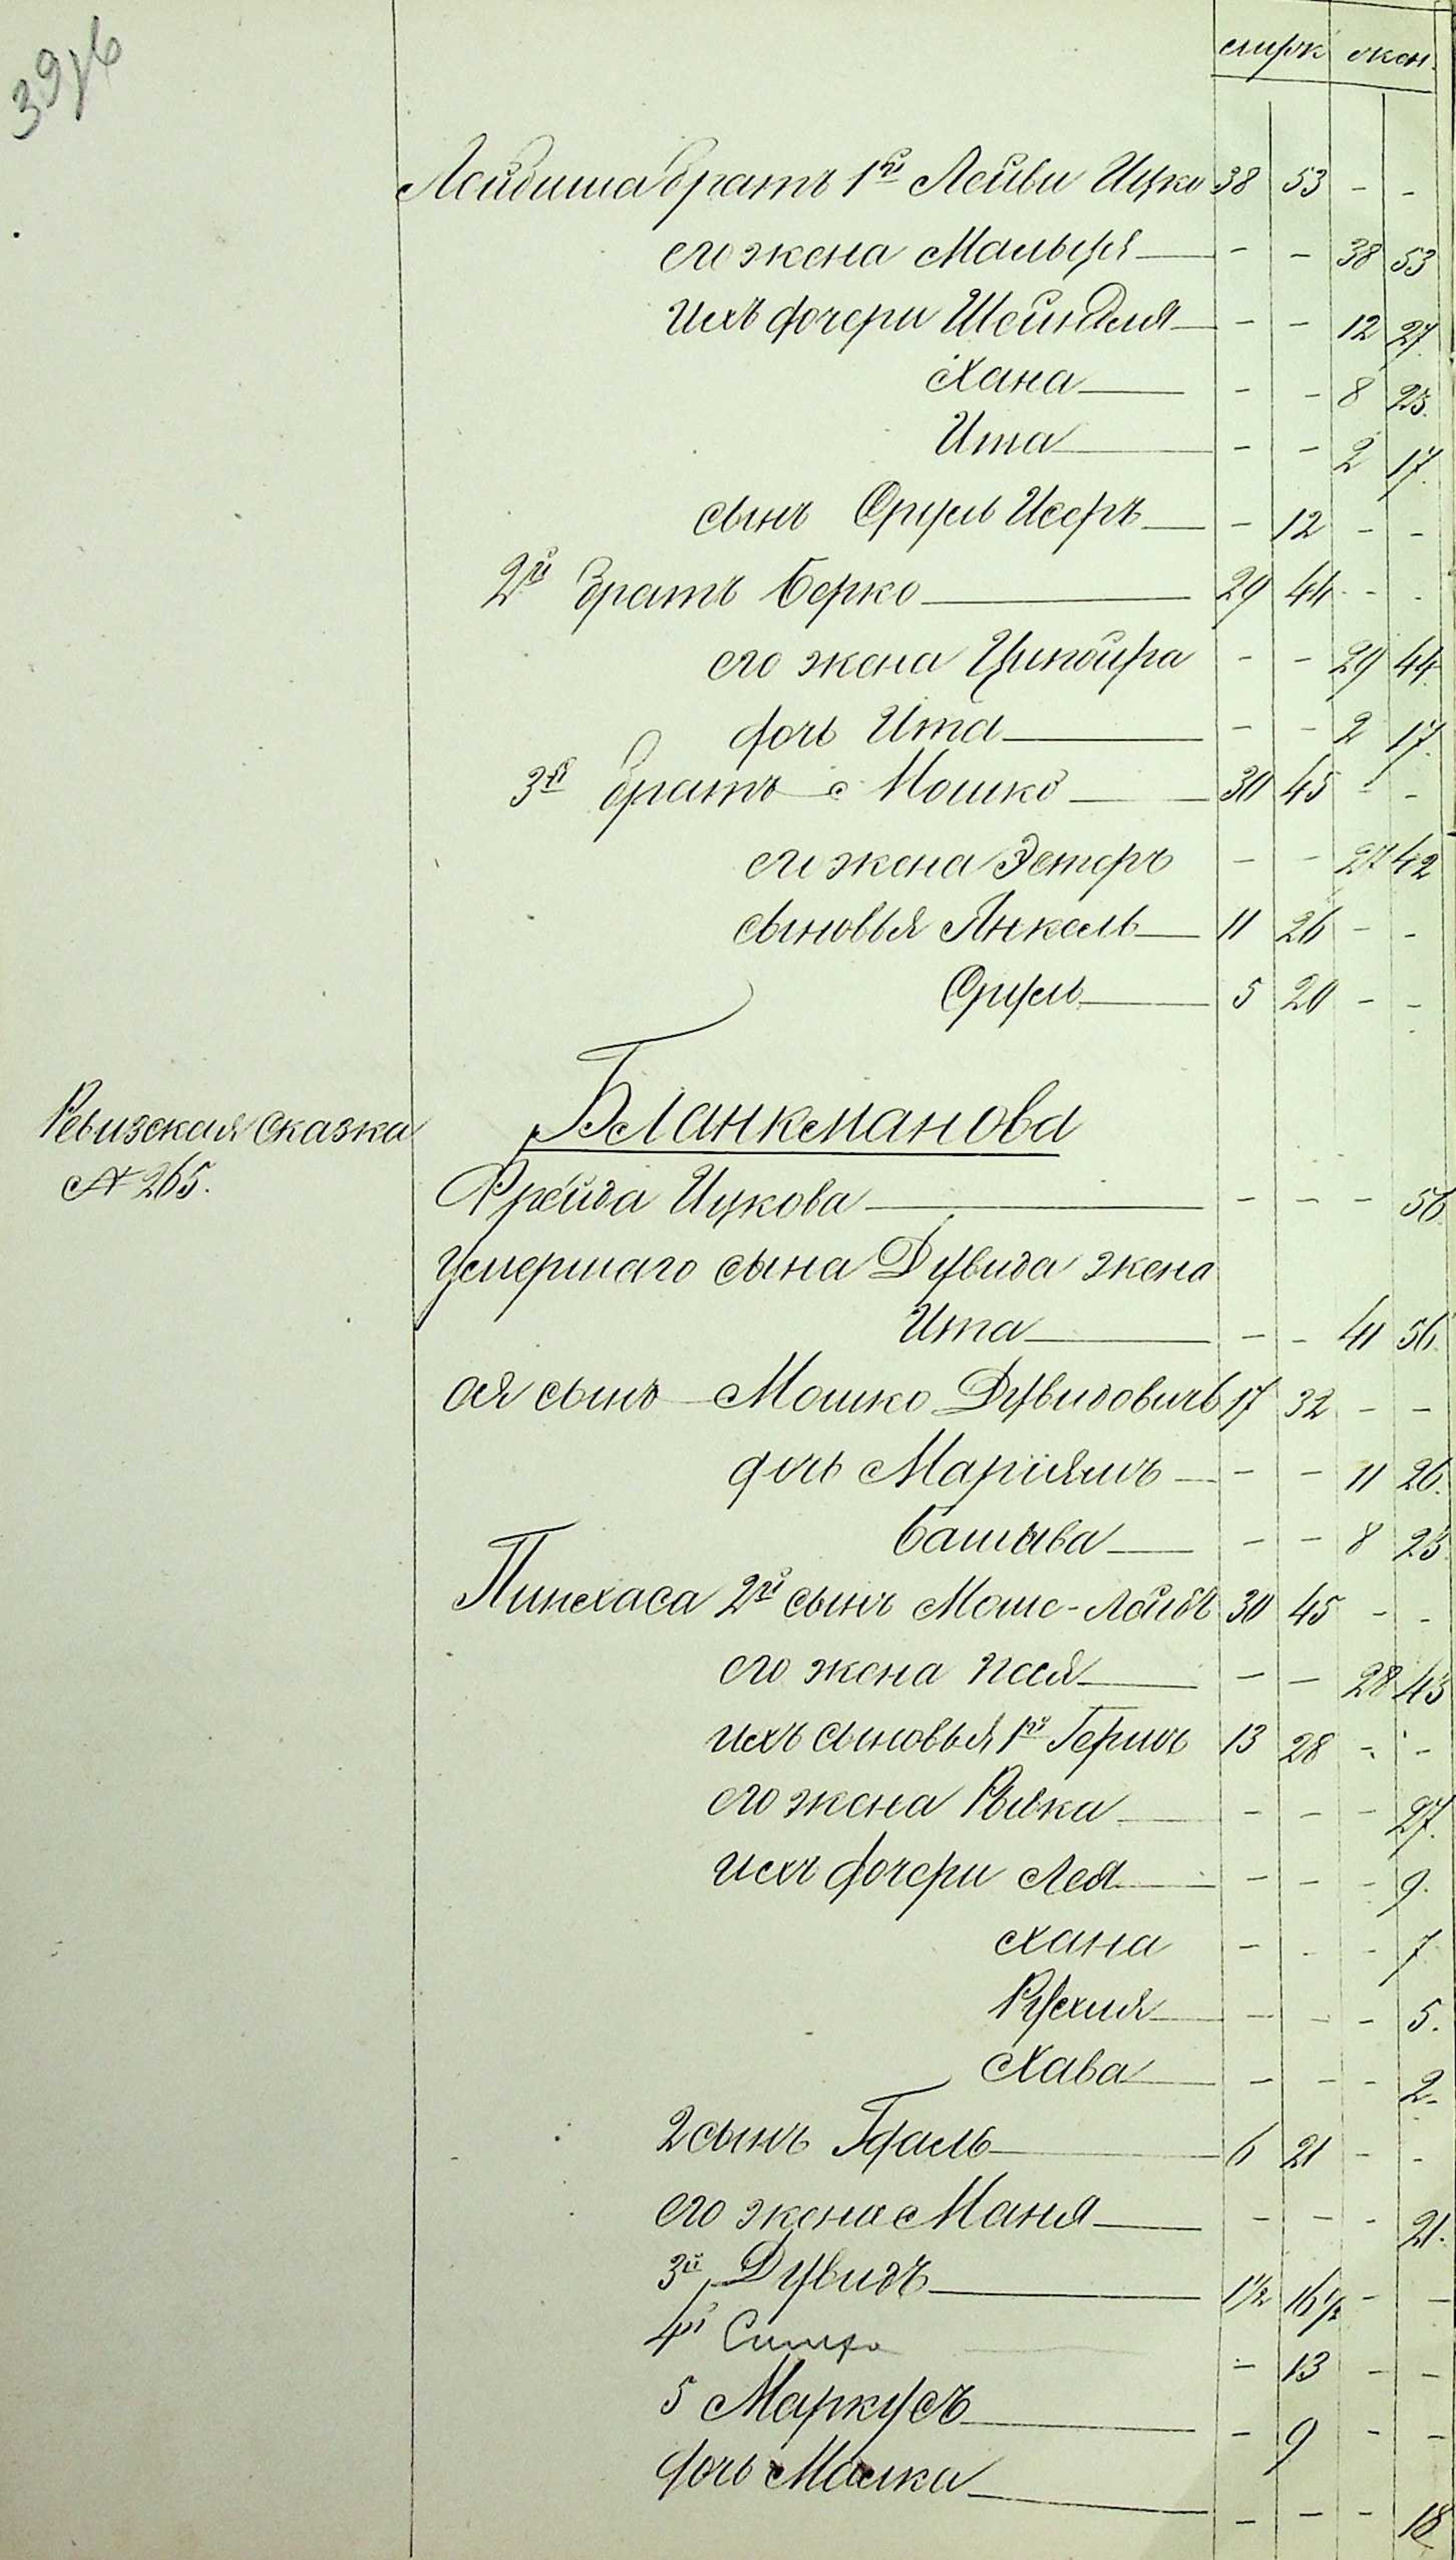 39/16
мужск женск.
Лейбиша братъ 1й Лейви Ицко 38 53 - -
его жена Мальця - - 38 53
ихъ дочери Шейндля - - 12 27.
Хана - - 8 23.
Ита - - 2 17.
сынъ Сруль Исеръ - 12 - -
2й братъ Берко 29 44 - -
его жена Ципойра - - 29 44
дочь Ита - - 2 17.
3й братъ Мошко 30 45 - -
его жена Эстеръ - - 27 42
сыновья Янкель 11 26 - -
Сруль 5 20 - -
Бланкманова
Ревизская сказка
№ 265.
Фрейда Ицкова - - - 56
умершаго сына Дувида жена
Ита - - 41 56.
ея сынъ Мошко Дувидовичъ 17 32 - -
дочь Маріямъ - - 11 26.
Башева - - 8 23
Пинхаса 2й сынъ Моше-Лейбъ 30 45 - -
его жена Песя - - 28 43
ихъ сыновья 1й Гершъ 13 28 - -
его жена Ривка - - - 27.
ихъ дочери Лея - - - 9.
Хана - - - 7
Рухля - - - 5.
Хава - - - 2.
2 сынъ Гдаль 6 21 - -
его жена Маня - - - 21.
3й Дувидъ 1½ 16½ - -
4й Симха - 13 - -
5 Маркусъ - 9 - -
дочь Малка - - - 18